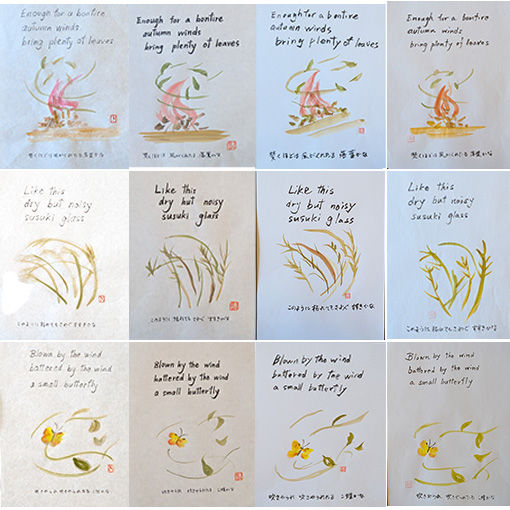 Enough for a bonfire
autumn winds
bring plenty of leaves
焚くほどは風がくれたる落葉かな
Enough for a bonfire
autumn winds
bring plenty of leaves
焚くほどは風がくれたる落葉かな
Enough for a bonfire
autumn winds
bring plenty of leaves
焚くほどは風がくれたる落葉かな
Enough for a bonfire
autumn winds
bring plenty of leaves
焚くほどは風がくれたる落葉かな
Like this
dry but noisy
susuki glass
このように枯れてもさわぐすすきかな
Like this
dry but noisy
susuki glass
このように枯れてもさわぐすすきかな
Like this
dry but noisy
susuki glass
このように枯れてもさわぐすすきかな
Like this
dry but noisy
susuki glass
このように枯れてもさわぐすすきかな
Blown by the wind
battered by the wind
a small butterfly
Blown by the wind
battered by the wind
a small butterfly
Blown by the wind
battered by the wind
a small butterfly
吹きやられ吹きやられたる小蝶かな
Blown by the wind
battered by the wind
a small butterfly
吹きやられ吹きやられたる小蝶かな